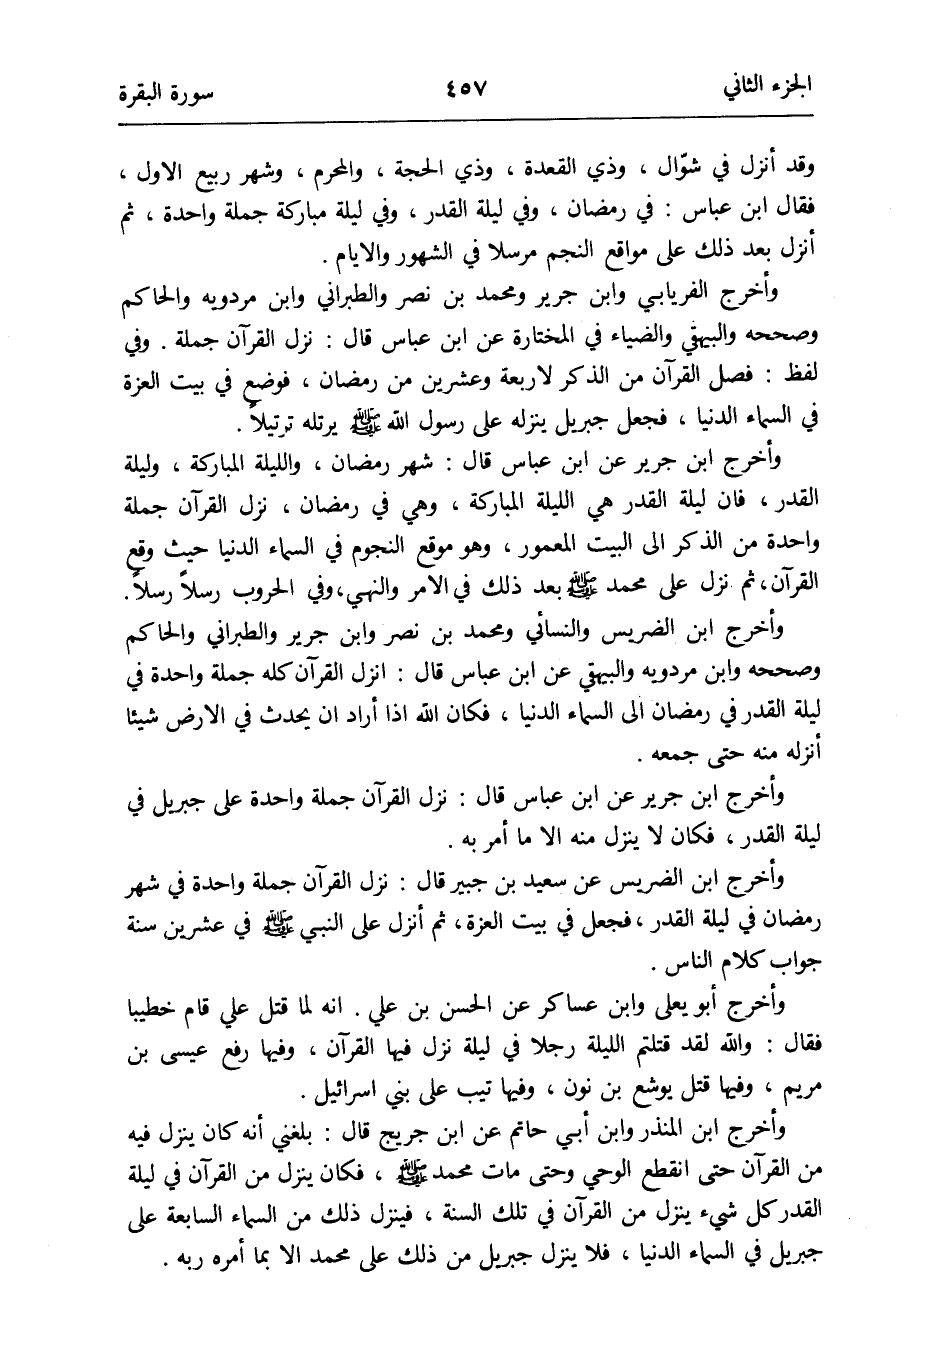 الجزء الثاني ٤٥٧ سورة البقرة
وقد أنزل في شوّال ، وذي القعدة ، وذي الحجة ، والمحرم ، وشهر ربيع الاول ،
فقال ابن عباس : في رمضان ، وفي ليلة القدر ، وفي ليلة مباركة جملة واحدة ، ثم
أنزل بعد ذلك على مواقع النجم مرسلا في الشهور والايام .
وأخرج الفريابي وابن جرير ومحمد بن نصر والطبراني وابن مردويه والحاكم
وصححه والبيهقي والضياء في المختارة عن ابن عباس قال : نزل القرآن جملة . وفي
لفظ : فصل القرآن من الذكر لاربعة وعشرين من رمضان ، فوضع في بيت العزة
في السماء الدنيا ، فجعل جبريل ينزله على رسول الله ﷺ يرتله ترتيلاً .
وأخرج ابن جرير عن ابن عباس قال : شهر رمضان ، والليلة المباركة ، وليلة
القدر ، فان ليلة القدر هي الليلة المباركة ، وهي في رمضان ، نزل القرآن جملة
واحدة من الذكر الى البيت المعمور ، وهو موقع النجوم في السماء الدنيا حيث وقع
القرآن، ثم نزل على محمد ﷺ بعد ذلك في الامر والنهي، وفي الحروب رسلاً رسلاً.
وأخرج ابن الضريس والنسائي ومحمد بن نصر وابن جرير والطبراني والحاكم
وصححه وابن مردويه والبيهقي عن ابن عباس قال : انزل القرآن كله جملة واحدة في
ليلة القدر في رمضان الى السماء الدنيا ، فكان الله اذا أراد ان يحدث في الارض شيئا
أنزله منه حتى جمعه .
وأخرج ابن جرير عن ابن عباس قال : نزل القرآن جملة واحدة على جبريل في
ليلة القدر ، فكان لا ينزل منه الا ما أمر به .
وأخرج ابن الضريس عن سعيد بن جبير قال : نزل القرآن جملة واحدة في شهر
رمضان في ليلة القدر ، فجعل في بيت العزة ، ثم أنزل على النبي ﷺ في عشرين سنة
جواب كلام الناس .
وأخرج أبو يعلى وابن عساكر عن الحسن بن علي . انه لما قتل علي قام خطيبا
فقال : والله لقد قتلتم الليلة رجلا في ليلة نزل فيها القرآن ، وفيها رفع عيسى بن
مريم ، وفيها قتل يوشع بن نون ، وفيها تيب على بني اسرائيل .
وأخرج ابن المنذر وابن أبي حاتم عن ابن جريج قال : بلغني أنه كان ينزل فيه
من القرآن حتى انقطع الوحي وحتى مات محمد ﷺ ، فكان ينزل من القرآن في ليلة
القدر كل شيء ينزل من القرآن في تلك السنة ، فينزل ذلك من السماء السابعة على
جبريل في السماء الدنيا ، فلا ينزل جبريل من ذلك على محمد الا بما أمره ربه .